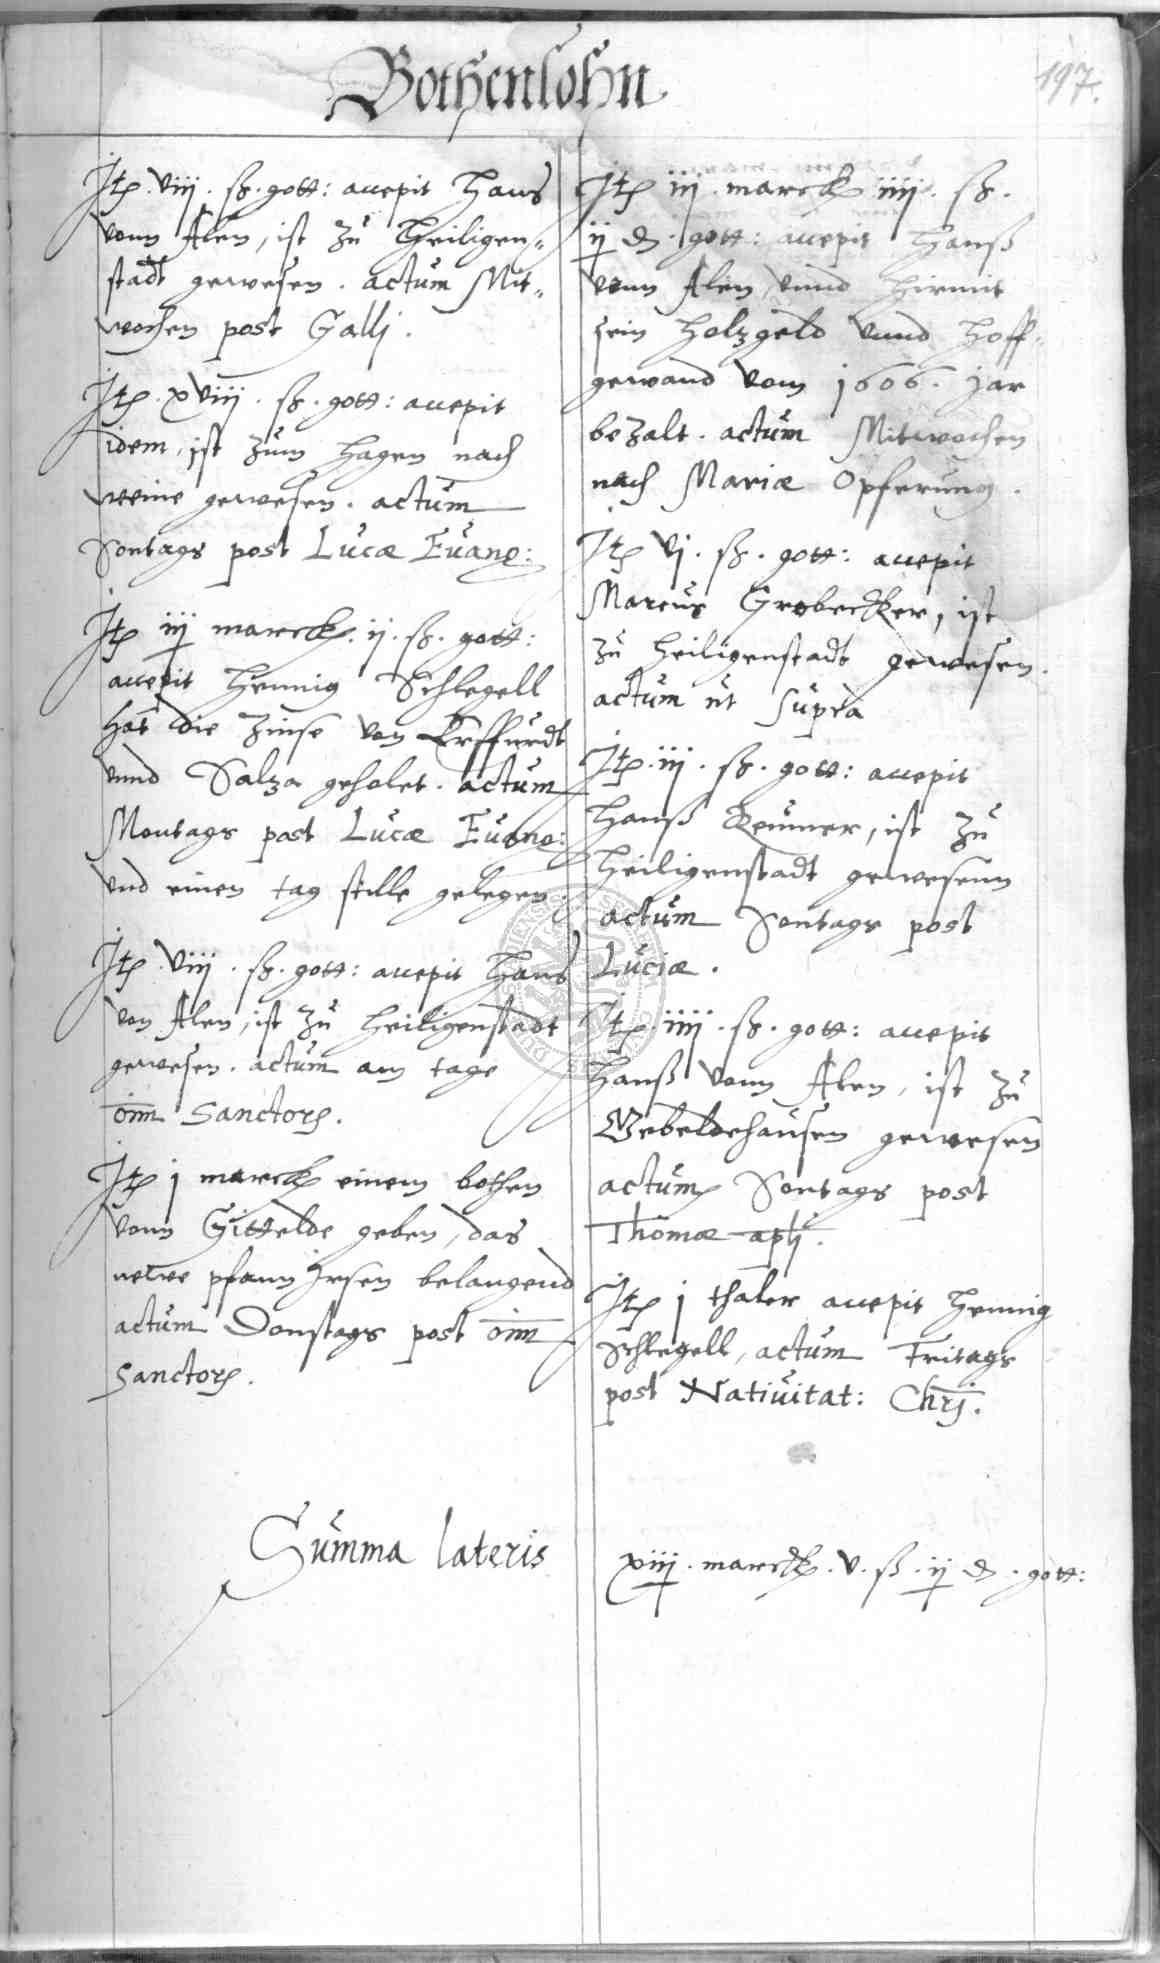 Bothenlohn
197.
Jtẽ. viij. ß. gott: accepit Hans
vonn Alen, ist zu Heiligen„
stadt gewesen. actum Mit„
wochen post Gallj.
Jtẽ. xviij. ß. gott: accepit
idem, ist zum Hagen nach
weine gewesen. actum
Sontags post Lucæ Euang:
Jtẽ iij marck. ij. ß. gott:
accepit Hennig Schlegell
hat die Zinse von Erffurdt
vnnd Salza geholet. actum
Montags post Lucæ Euang:
vnd einen tag stille gelegen.
Jtẽ. viij. ß. gott: accepit Hans
von Alen, ist zu Heiligenstadt
gewesen. actum am tage
om̄ Sanctorũ.
Jtẽ j marck einem bothen
vonn Gittelde geben, das
newe pfann Jrsen belangend
actum Donstags post om̄
Sanctorũ.
Jtẽ iij. marck iiij. ß.
ij ₰. gott: accepit Hanß
vonn Alen, vnnd hiemit
sein holzgeld vnnd hoff„
gewand vom 1606. Jar
bezalt. actum Mitwochen
nach Mariæ Opferung.
Jtẽ vj. ß. gott: accepit
Marcus Grobecker, ist
zu Heiligenstadt gewesen.
actum ut supra
Jtẽ. iij. ß. gott: accepit
Hanß Keumer, ist zu
Heiligenstadt gewesenn
actum Sontags post
Luciæ.
Jtẽ. iiij. ß. gott: accepit
Hanß vonn Alen, ist zu
Gebeldehausen gewesen
actum Sontags post
Thomæ apli.
Jtẽ j thaler accepit Hennig
Schlegell, actum Freitags
post Natiuitat: Chrj.
Summa lateris
xiij. marck. v. ß. ij ₰. gott: